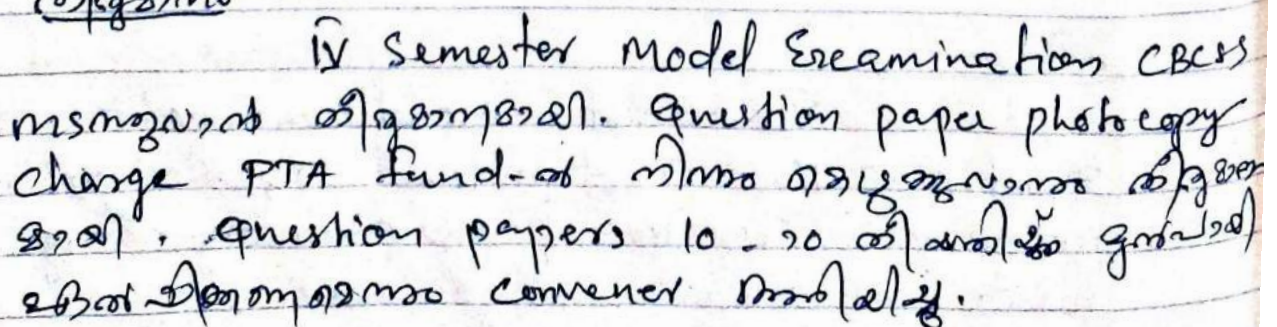 തീരുമാനം
IV Semester Model Examination CBCSS
നടത്തുവാൻ തീരുമാനമായി. Question paper photocopy
charge PTA fund-ൽ നിന്നും എടുക്കുവാനും തീരുമാന
മായി. Question papers 10-20 തീയതിയ്ക്കും മുൻപായി
ഏൽപിക്കണമെന്നും convener അറിയിച്ചു.